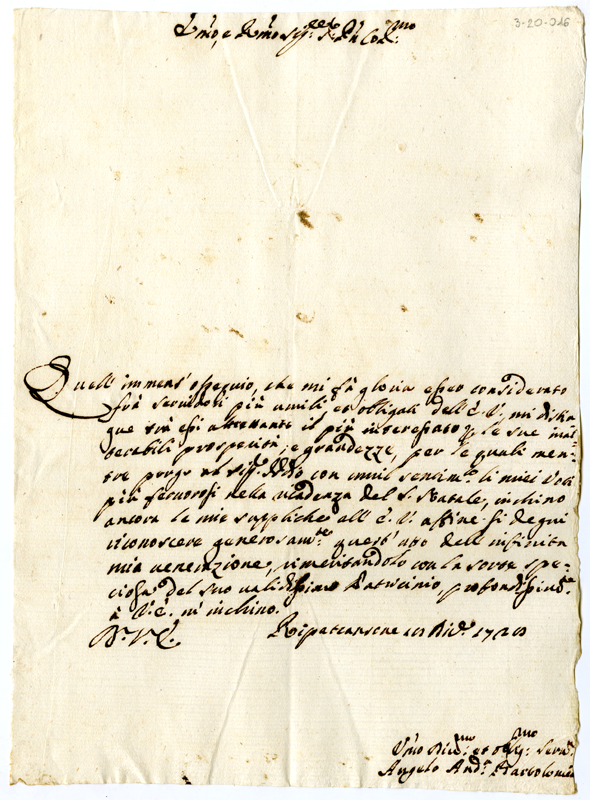 3-20-016
Quell' immens' ossequio, che mi fà gloria esser considerato
frà servidori più umili, et obligati dell' E. V. mi distin
gue trà essi altretanto il più interessato p le sue inal
terabili prosperità, e grandezze, per le quali men-
tre porgo al Sig. Iddio con umil sentim. li miei Voti
più fervorosi nella cadenza del S. Natale, inchino
ancora le mie suppliche all' E. V. affine si degni
riconoscere generosam.te quest' atto dell' infinita
mia venerazione, rimeritandolo con la sorte spe-
ciosa del suo validissimo Patrocinio, e profondissim.te
à V. E. m' inchino.
D. V. E. Ripatransone Dic. 17
Umo Div.mo et obblig.mo Servid.
Angelo And. Bartolomei